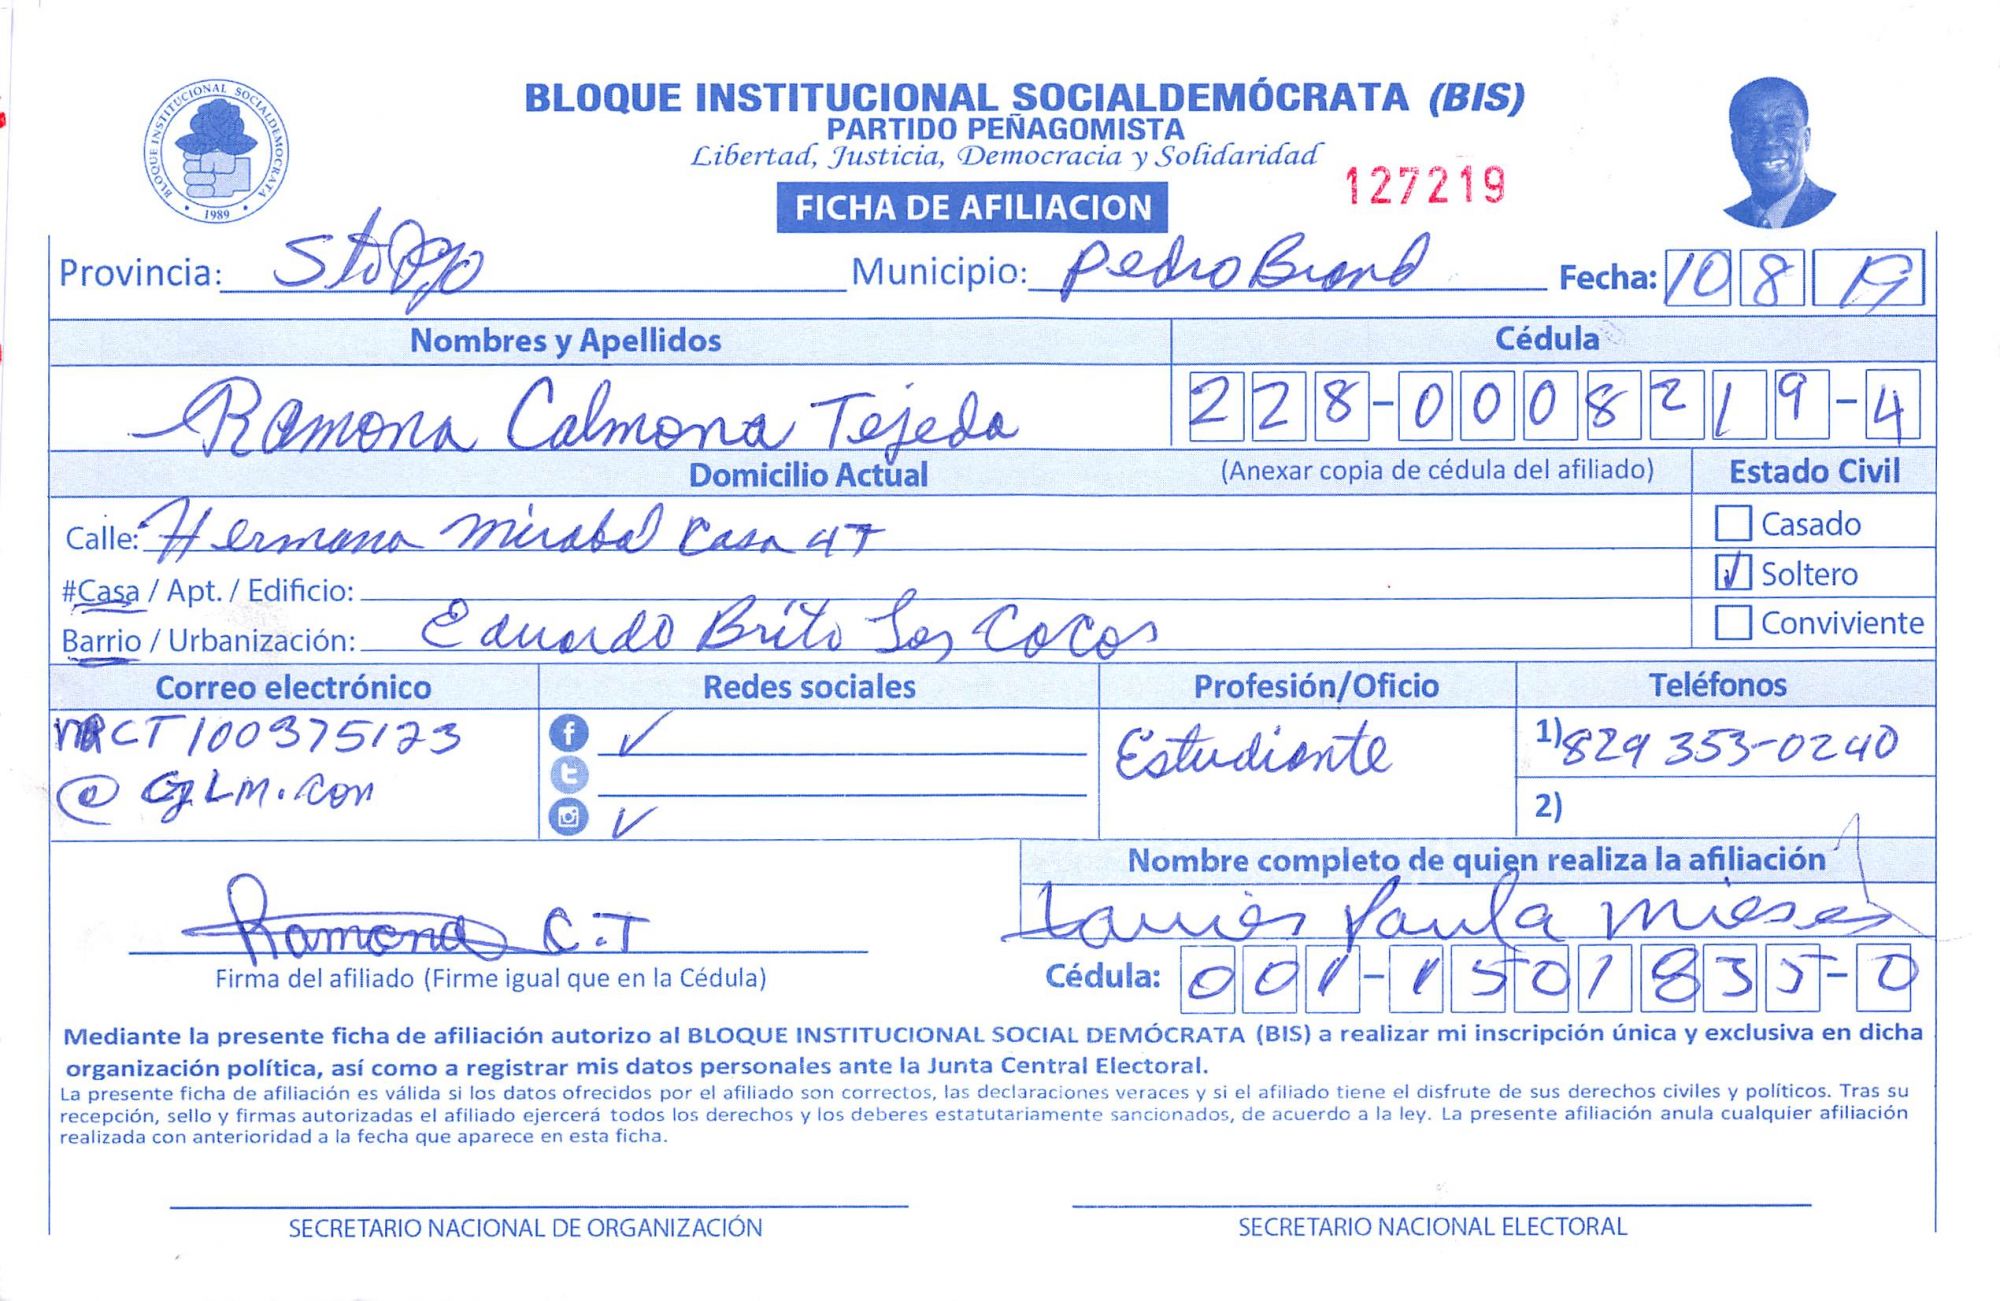 BLOQUE INSTITUCIONAL SOCIALDEMÓCRATA (BIS)
PARTIDO PEÑAGOMISTA
Libertad, Justicia, Democracia y Solidaridad
BLOQUE INSTITUCIONAL SOCIALDEMOCRATA
1989
127219
FICHA DE AFILIACION
Provincia: Sto Dgo Municipio: Pedro Brand Fecha: 10 8 19
Nombres y Apellidos Cédula
Ramona Calmona Tejeda 228-0008219-4
Domicilio Actual (Anexar copia de cédula del afiliado) Estado Civil
Calle: Hermana Mirabal Casa 47 Casado
#Casa / Apt. / Edificio: Soltero
Barrio / Urbanización: Eduardo Brito Los Cocos Conviviente
Correo electrónico Redes sociales Profesión/Oficio Teléfonos
CT100375123 Estudiante 1) 829 353-0240
@ GLM.con 2)
Nombre completo de quien realiza la afiliación
Ramona C.T Paula Mieses
Firma del afiliado (Firme igual que en la Cédula) Cédula: 001-1501835-0
Mediante la presente ficha de afiliación autorizo al BLOQUE INSTITUCIONAL SOCIAL DEMÓCRATA (BIS) a realizar mi inscripción única y exclusiva en dicha
organización política, así como a registrar mis datos personales ante la Junta Central Electoral.
La presente ficha de afiliación es válida si los datos ofrecidos por el afiliado son correctos, las declaraciones veraces y si el afiliado tiene el disfrute de sus derechos civiles y políticos. Tras su
recepción, sello y firmas autorizadas el afiliado ejercerá todos los derechos y los deberes estatutariamente sancionados, de acuerdo a la ley. La presente afiliación anula cualquier afiliación
realizada con anterioridad a la fecha que aparece en esta ficha.
SECRETARIO NACIONAL DE ORGANIZACIÓN SECRETARIO NACIONAL ELECTORAL